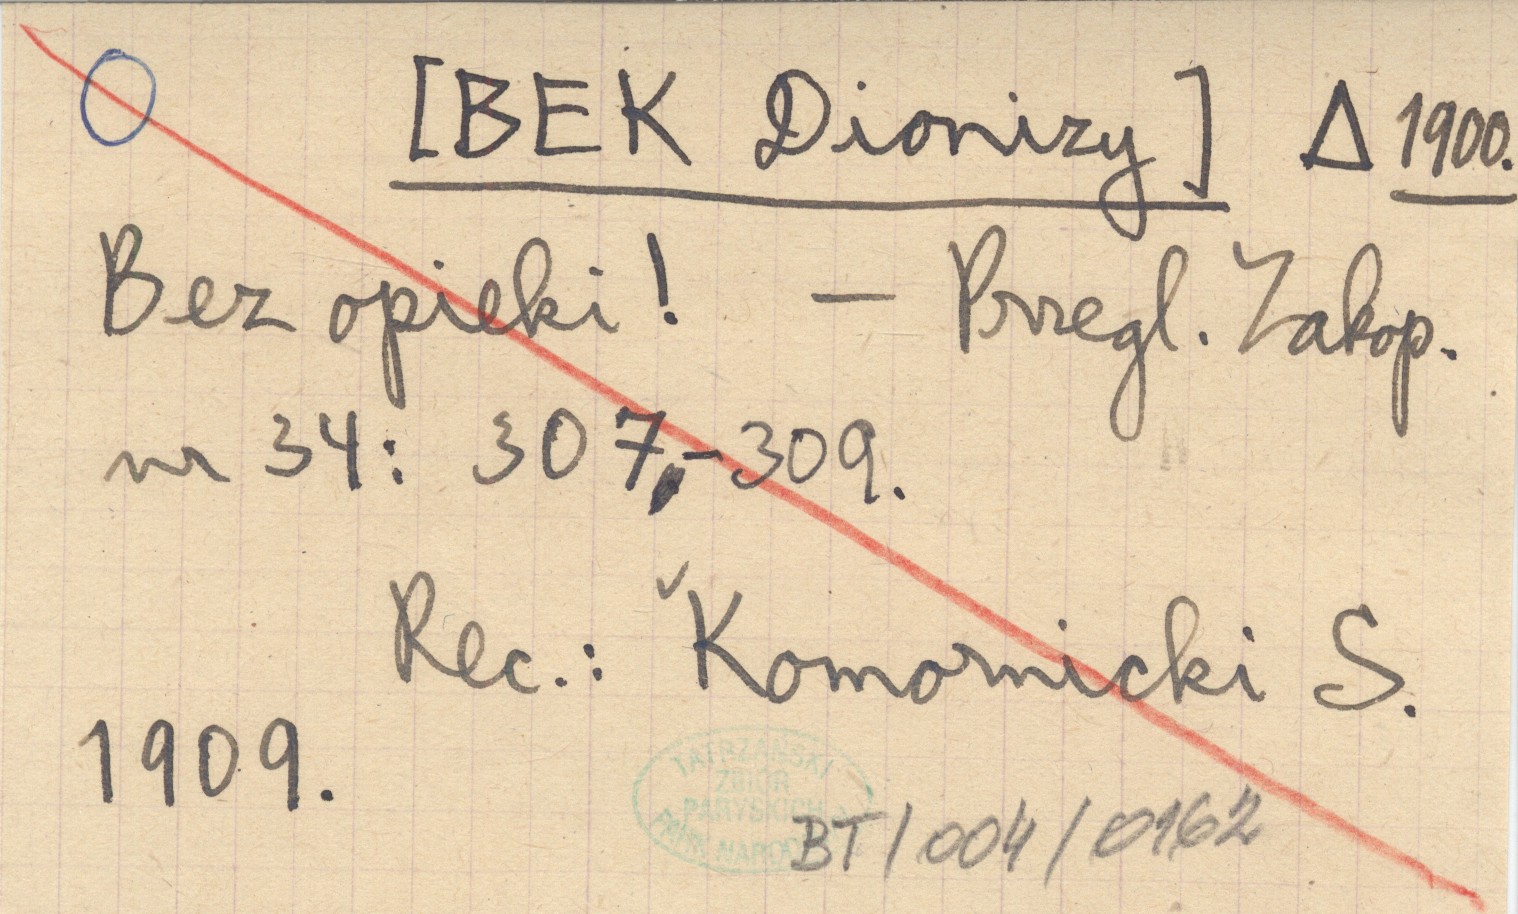 [BEK Dionizy] Δ 1900.
Bez opieki! — Przegl. Zakop.
nr 34: 307,-309.
Rec.: Komornicki S.
1909.
TATRZAŃSKI
ZBIÓR
PARYSKICH
PARK NARODO
BT/004/0162